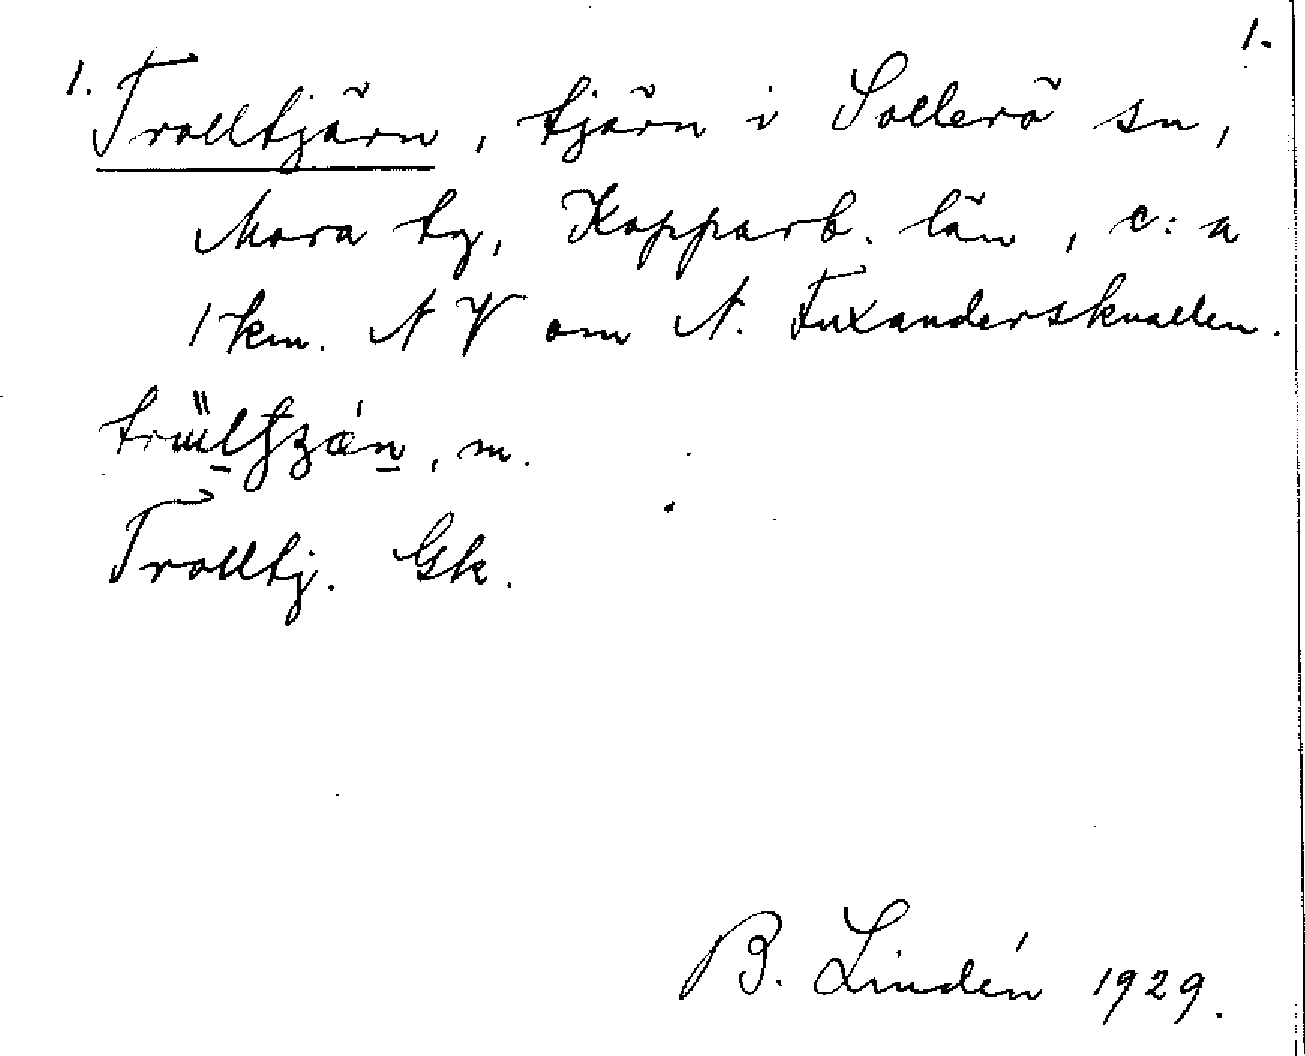 1.
1. Trolltjärn, tjärn i Sollerö sn,
Mora tg, Kopparb. län, c:a
1 km. NV om N. Fuxandersknallen.
, m.
Trolltj. Gk.
B. Lindén 1929.